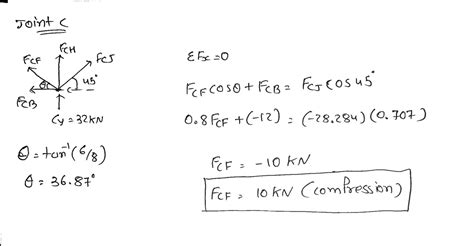 Joint C
FCH
FCF
FCJ
θ
C
45°
FCB
Cy = 32KN
θ = tan⁻¹(6/8)
θ = 36.87°
ΣFx = 0
FCF cosθ + FCB = FCJ cos45°
0.8FCF + (-12) = (-28.284)(0.707)
FCF = -10 KN
FCF = 10 KN (compression)